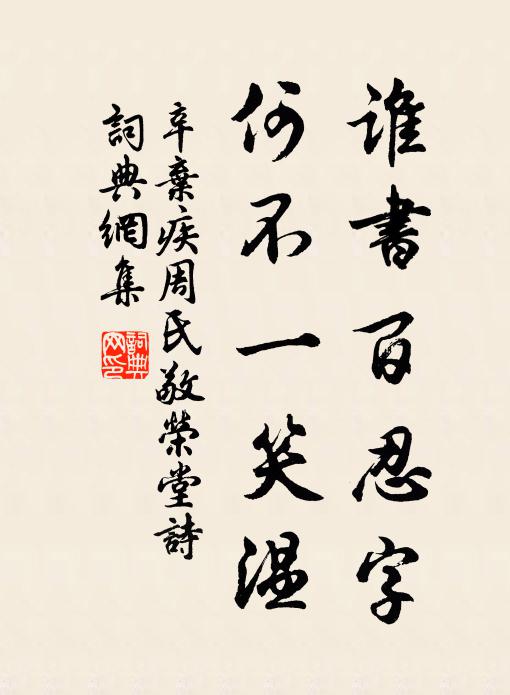 谁書百忍字
何不一笑温
辛棄疾周氏敬榮堂詩
詞典網集
詞典网印